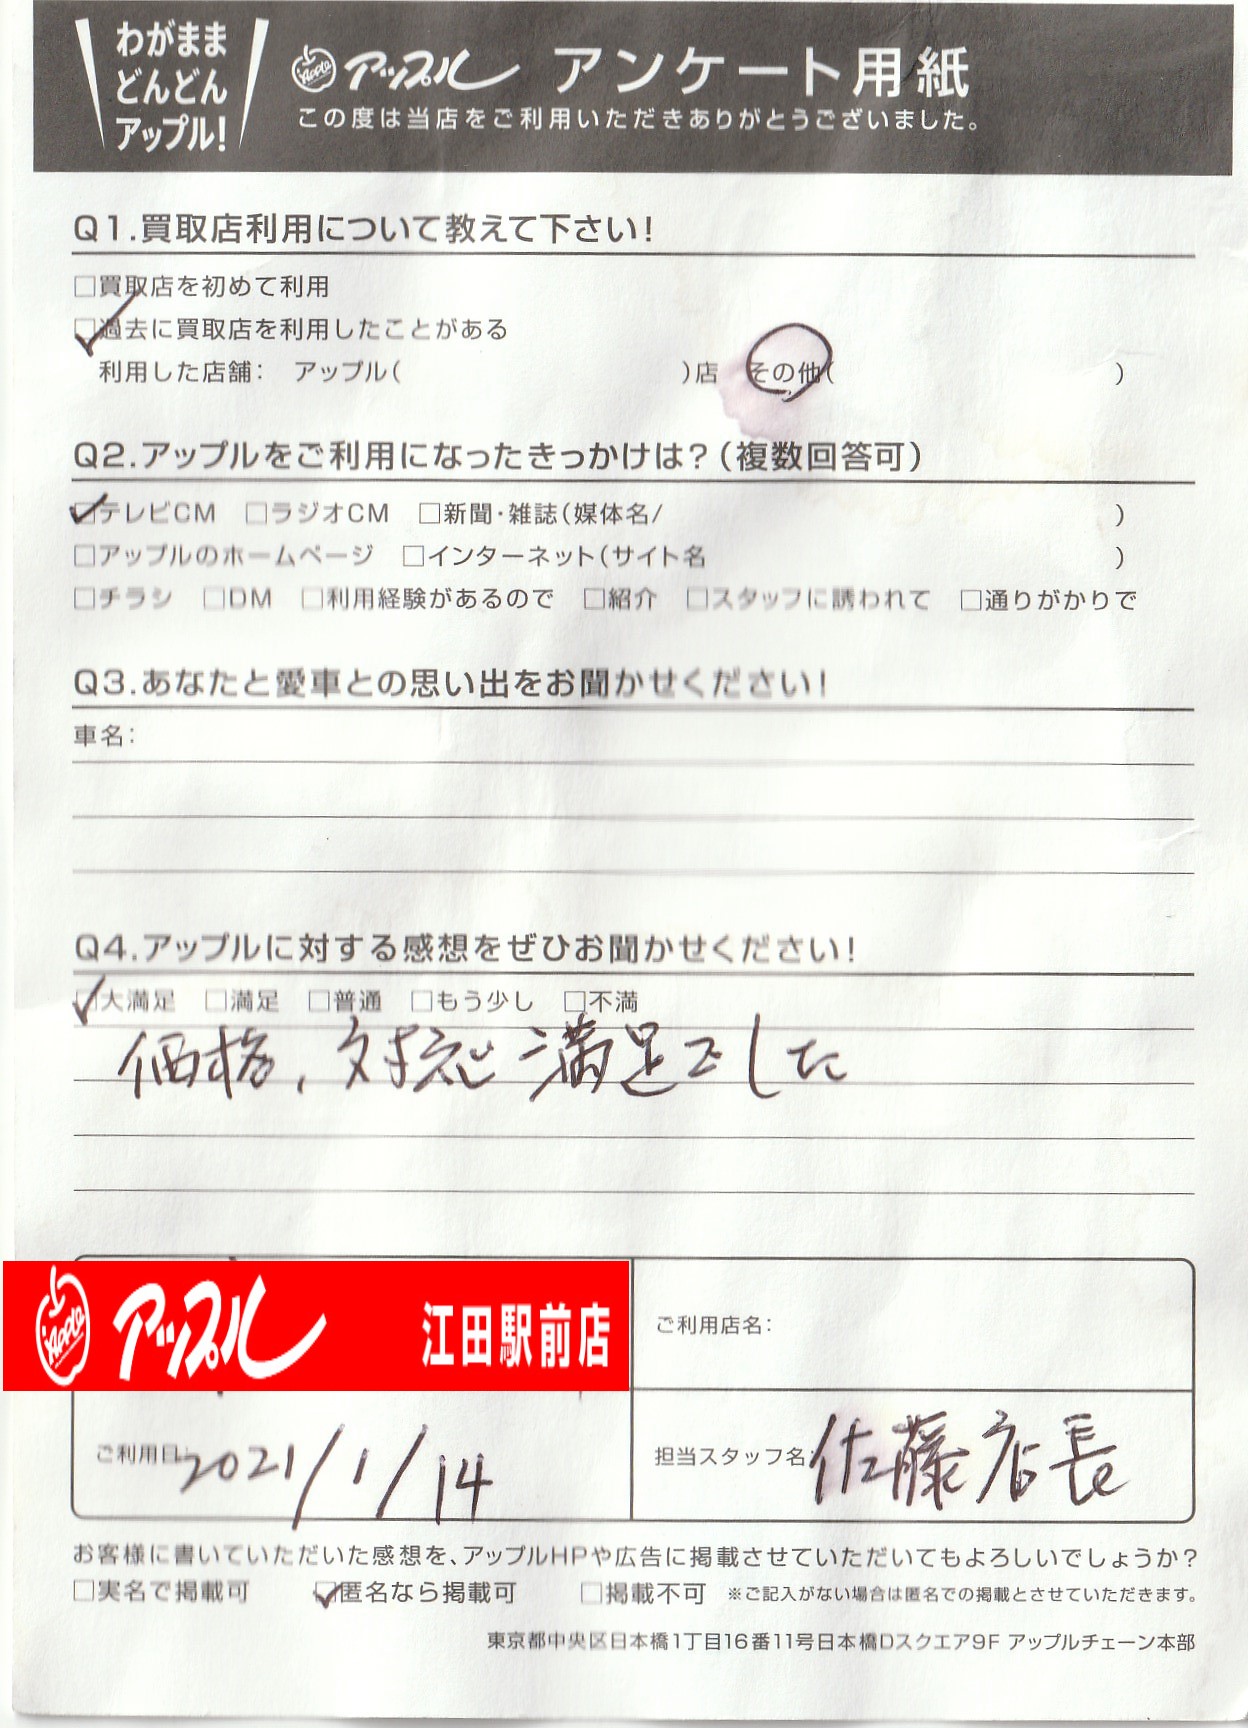 わがまま
どんどん
アップル!
Apple アップル アンケート用紙
この度は当店をご利用いただきありがとうございました。
Q1.買取店利用について教えて下さい!
□買取店を初めて利用
☑過去に買取店を利用したことがある
利用した店舗: アップル( )店 その他( )
Q2.アップルをご利用になったきっかけは?(複数回答可)
☑テレビCM □ラジオCM □新聞・雑誌(媒体名/ )
□アップルのホームページ □インターネット(サイト名 )
□チラシ □DM □利用経験があるので □紹介 □スタッフに誘われて □通りがかりで
Q3.あなたと愛車との思い出をお聞かせください!
車名:
Q4.アップルに対する感想をぜひお聞かせください!
☑大満足 □満足 □普通 □もう少し □不満
価格、対応 満足でした
Apple アップル 江田駅前店
ご利用店名:
ご利用日: 2021/1/14
担当スタッフ名: 佐藤店長
お客様に書いていただいた感想を、アップルHPや広告に掲載させていただいてもよろしいでしょうか?
□実名で掲載可 ☑匿名なら掲載可 □掲載不可 ※ご記入がない場合は匿名での掲載とさせていただきます。
東京都中央区日本橋1丁目16番11号日本橋Dスクエア9F アップルチェーン本部